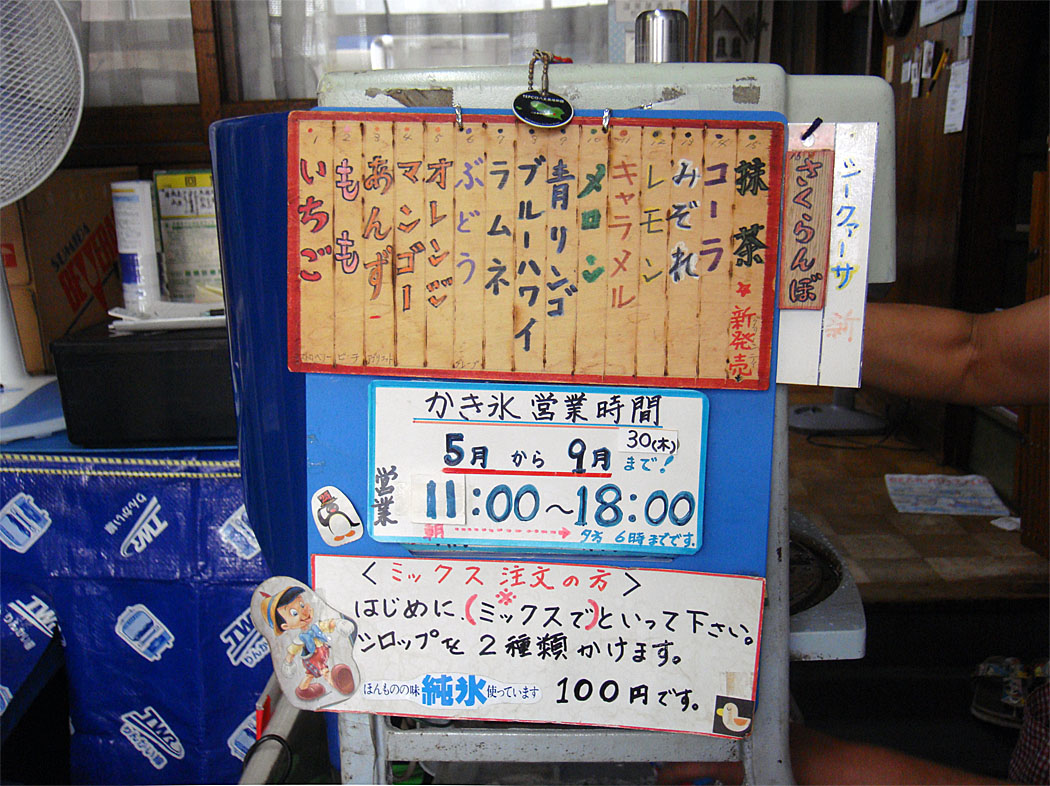 いちご
もも
あんず
マンゴー
オレンジ
ぶどう
ラムネ
ブルーハワイ
青リンゴ
メロン
キャラメル
レモン
みぞれ
コーラ
抹茶
★新発売
さくらんぼ
シークァーサ
新
かき氷営業時間
5月から9月30(木)まで!
営業
11:00～18:00
朝
夕方 6時までです。
<ミックス注文の方>
※
はじめに(ミックスで)といって下さい。
シロップを2種類かけます。
ほんものの味 純氷 使っています
100円です。